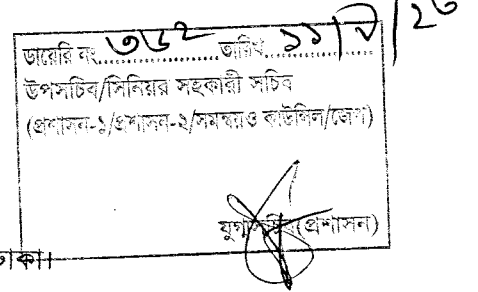 ডায়েরি নং ৩৬২ তারিখ ১১/৭/২৩
উপসচিব/সিনিয়র সহকারী সচিব
(প্রশাসন-১/প্রশাসন-২/সমন্বয় ও কাউন্সিল/জেপ্র)
যুগ্মসচিব (প্রশাসন)
ঢাকা।